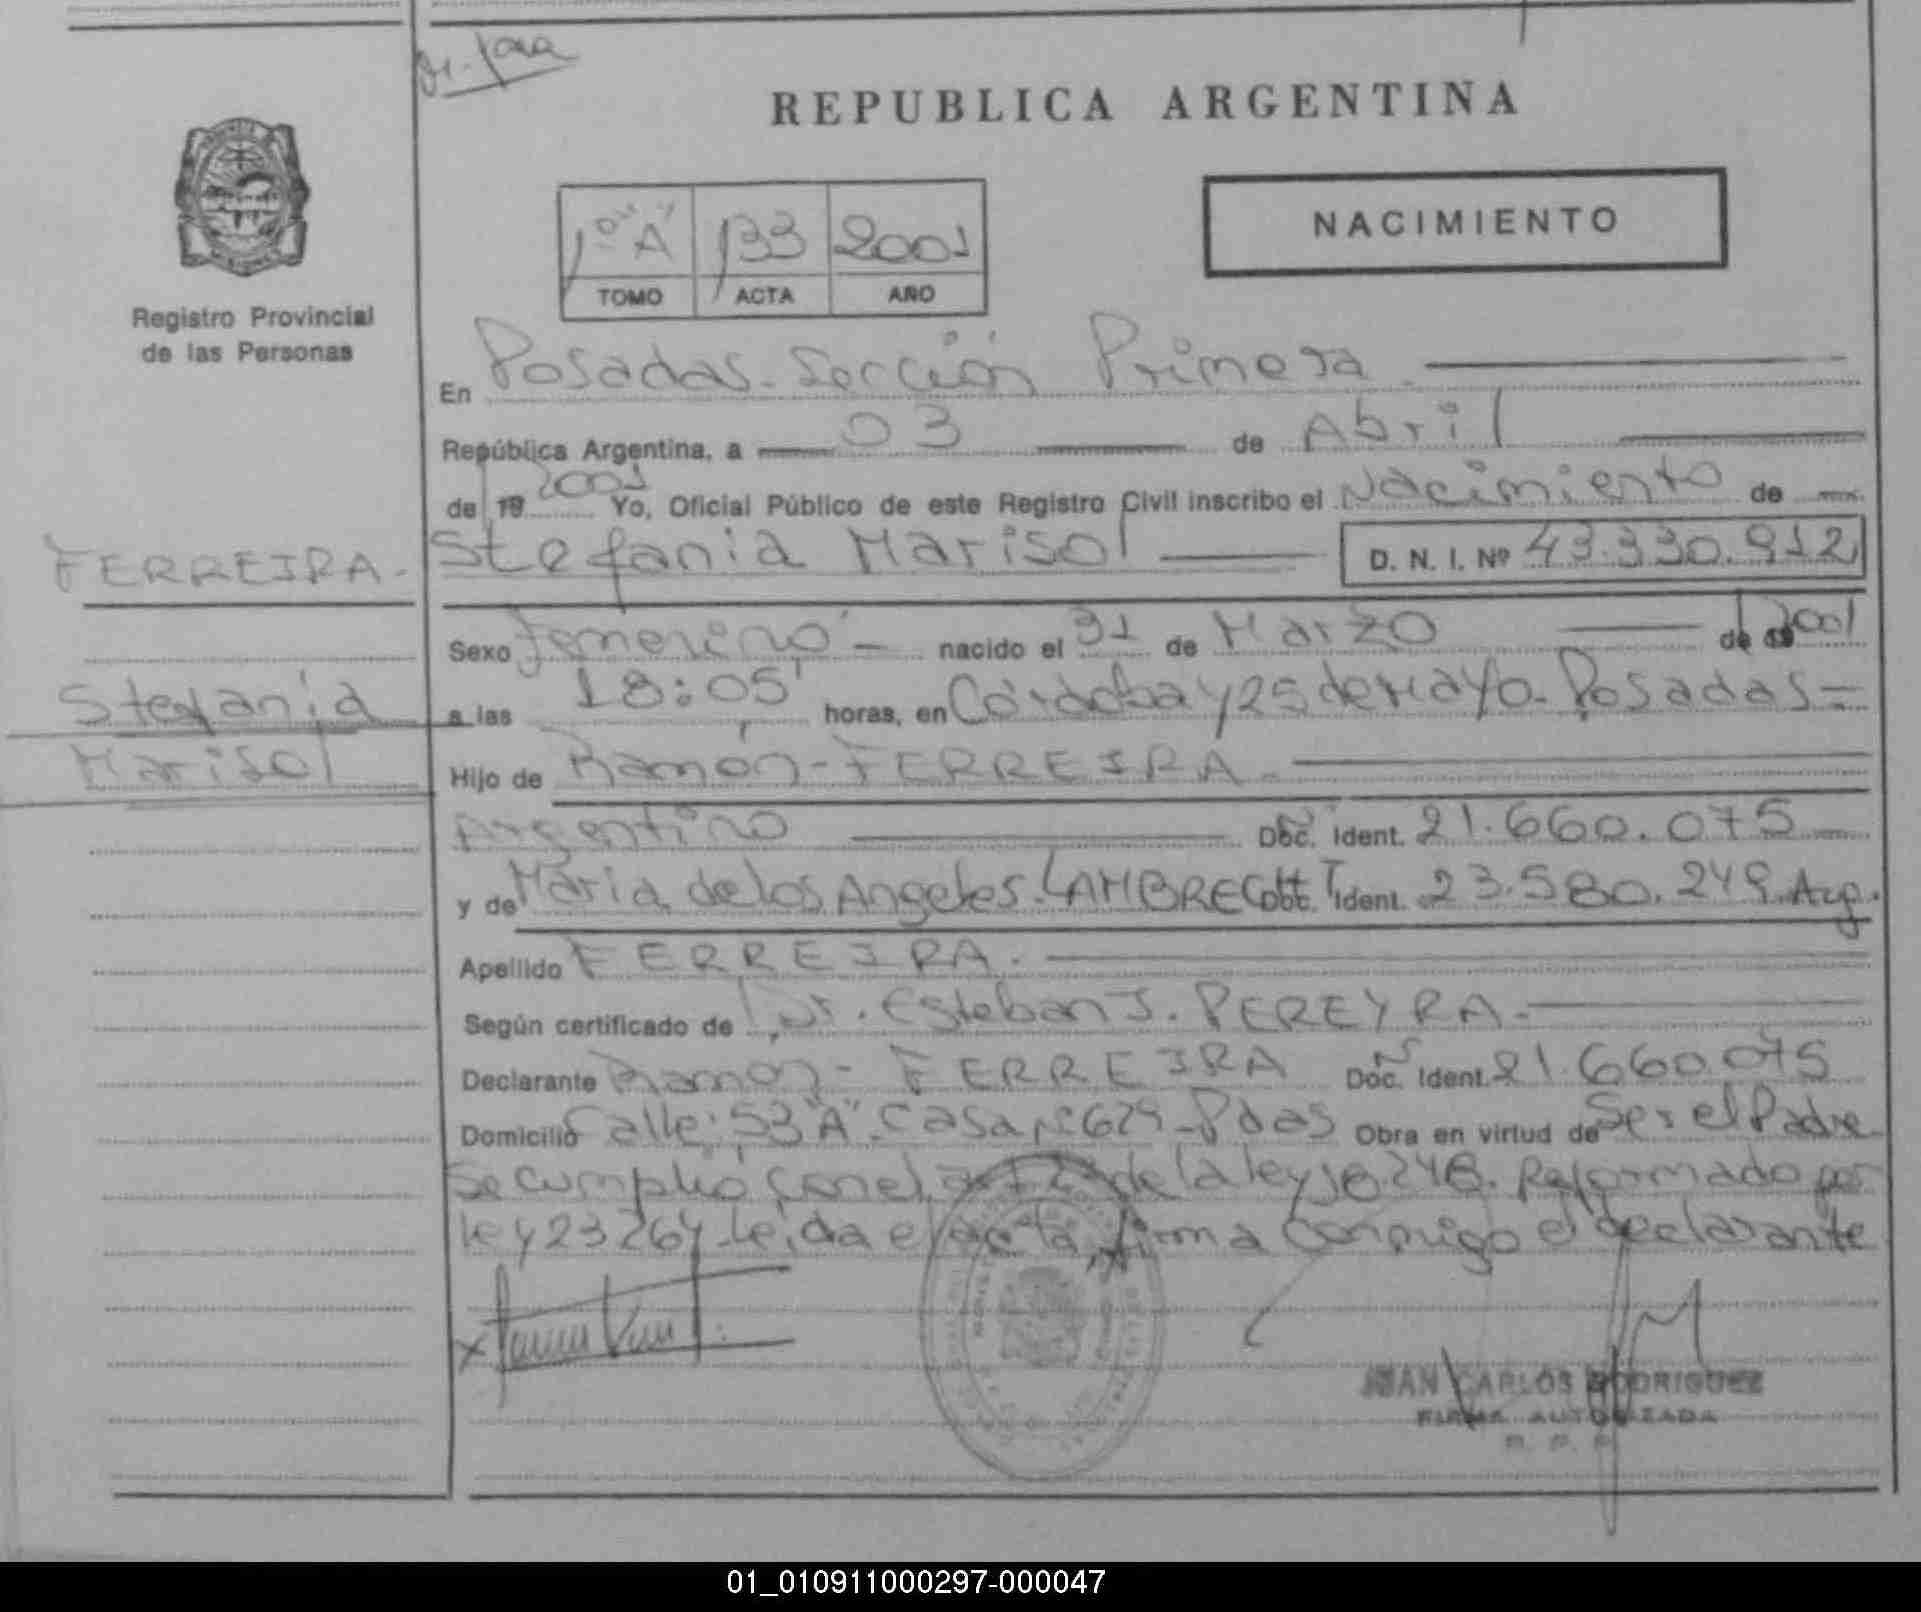 REPUBLICA ARGENTINA
NACIMIENTO
1º "A" 133 2001
TOMO ACTA AÑO
Registro Provincial
de las Personas
En Posadas - Sección Primera
República Argentina, a 03 de Abril
de 19 2001 Yo, Oficial Público de este Registro Civil inscribo el Nacimiento de
FERREIRA - Stefania Marisol D. N. I. Nº 43.330.912
Sexo femenino nacido el 31 de Marzo de 19 2001
Stefania a las 18:05' horas, en Córdoba y 25 de Mayo - Posadas =
Marisol Hijo de Ramón - FERREIRA -
Argentino Doc. Ident. 21.660.075
y de Maria de los Angeles - LAMBRECHT Doc. Ident. 23.580.249 Arg.
Apellido FERREIRA .
Según certificado de Dr. Esteban J. PEREYRA -
Declarante Ramón - FERREIRA Doc. Ident. 21.660.075
Domicilio Calle: 53 "A" - Casa nº 629 - Pdas Obra en virtud de Ser el Padre
Se cumplió con el art 2º de la ley 18.248. Reformado por
ley 23264 - Leida el acta, firma conmigo el declarante
JUAN CARLOS RODRIGUEZ
FIRMA AUTORIZADA
R. P. P.
01_010911000297-000047